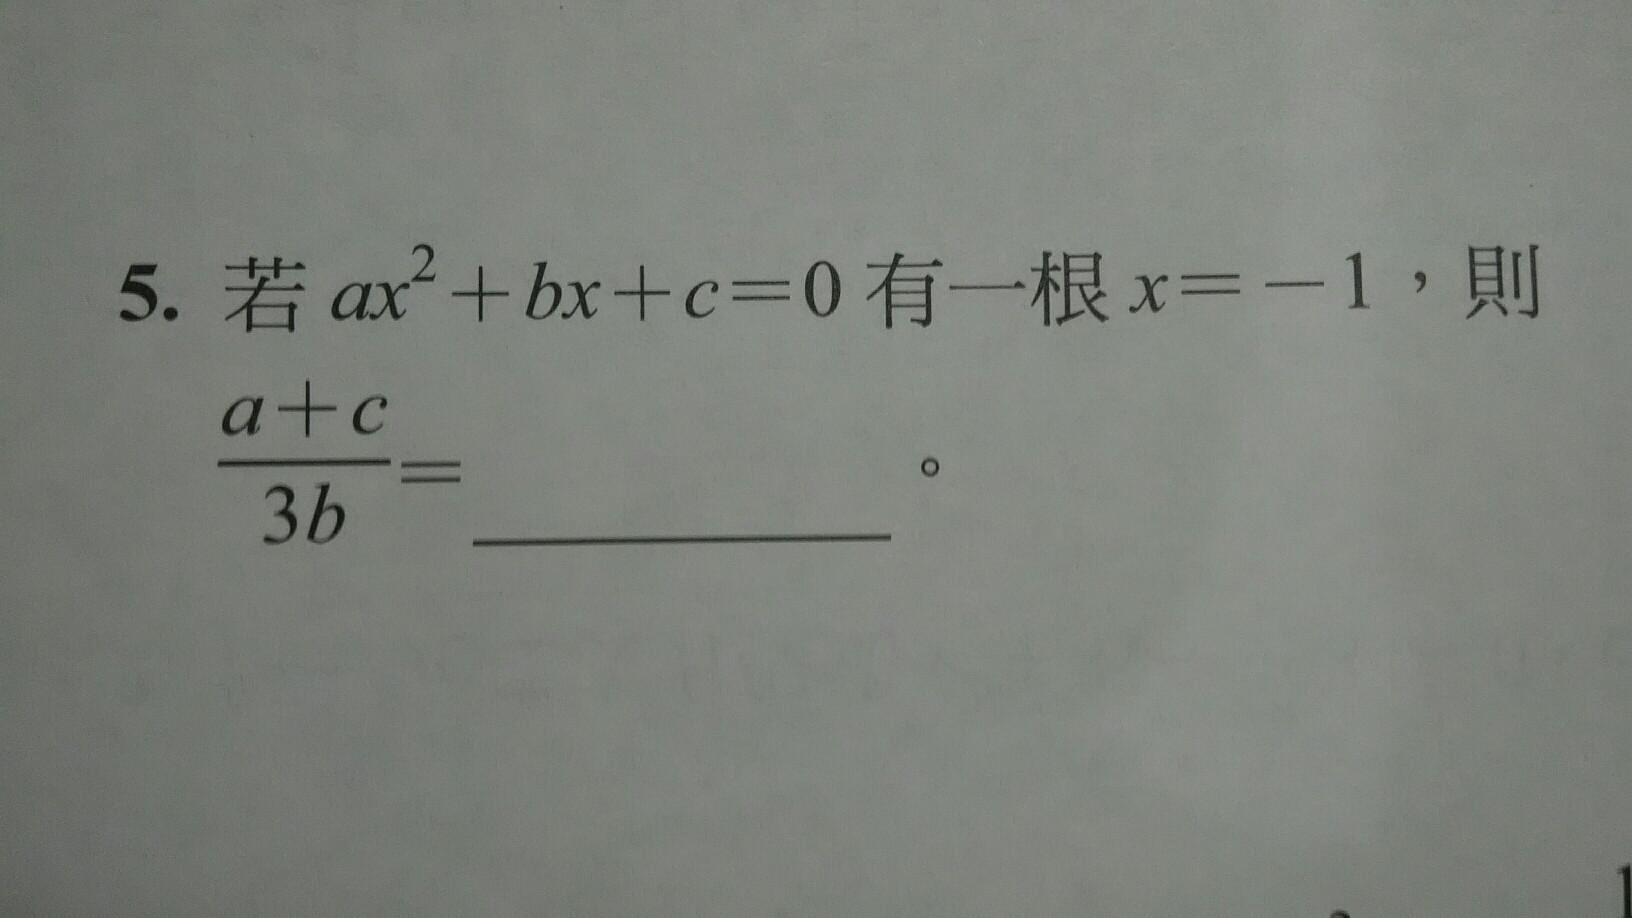 5. 若 ax²+bx+c=0 有一根 x=−1，則
a+c
3b
=________。